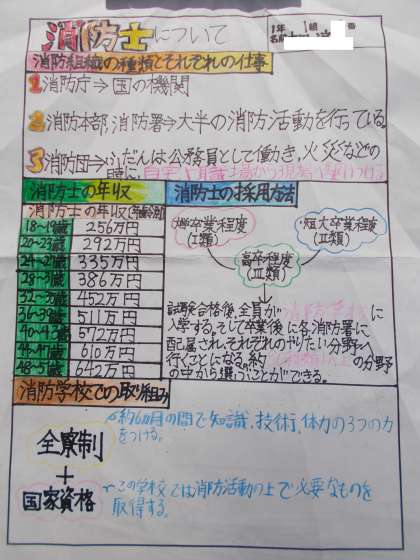 消防士について
1年 1組 番
名前
消防組織の種類とそれぞれの仕事
1 消防庁→国の機関
2 消防本部,消防署→大半の消防活動を行っている。
3 消防団→ふだんは公務員として働き,火災などの
時に,自宅や職場から現場へ駆けつける
消防士の年収
消防士の年収
18~19歳 256万円
20~23歳 292万円
24~27歳 335万円
28~31歳 386万円
32~35歳 452万円
36~39歳 511万円
40~43歳 572万円
44~47歳 610万円
48~51歳 642万円
消防士の採用方法
大学卒業程度
(Ⅰ類)
短大卒業程度
(Ⅱ類)
高卒程度
(Ⅲ類)
試験合格後,全員が消防学校に
入学する。そして卒業後に各消防署に
配属され,それぞれのやりたい分野へ
行くことになる。約 の分野
の中から選ぶことができる。
消防学校での取り組み
全寮制
+
国家資格
約6カ月の間で知識,技術,体力の3つの力
をつける。
この学校では消防活動の上で必要なものを
取得する。